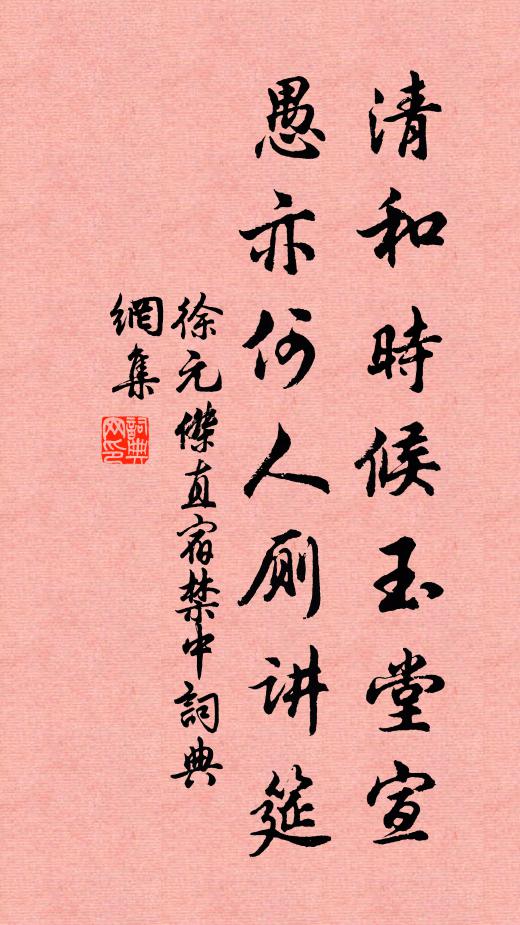 清和時候玉堂宣
愚亦何人厠讲筵
徐元傑直宿禁中詞典
網集
詞典
网印